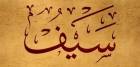 سَيْفُ